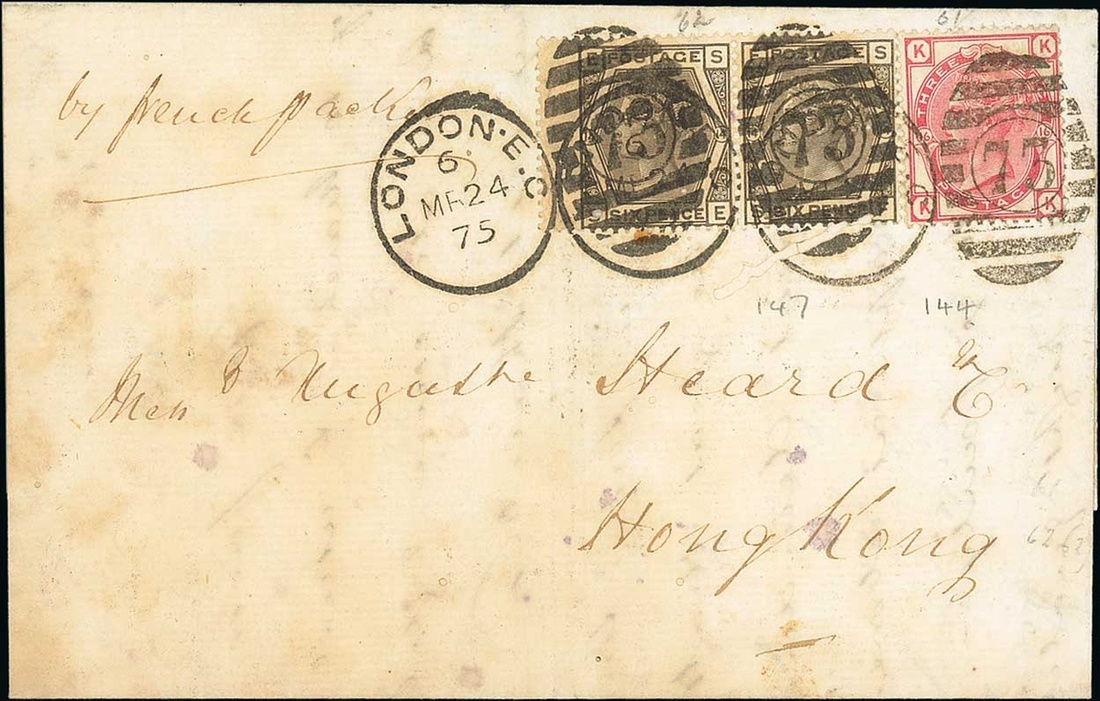 62 61
by french packe
LONDON·E.C
6
MR 24
75
E POSTAGE S
S SIX PENCE E
73
POSTAGE S
SIX PENCE
73
K K
THREE
16 16
POSTAGE
K K
73
147 144
Mess Augustine Heard & C
Hong Kong
62